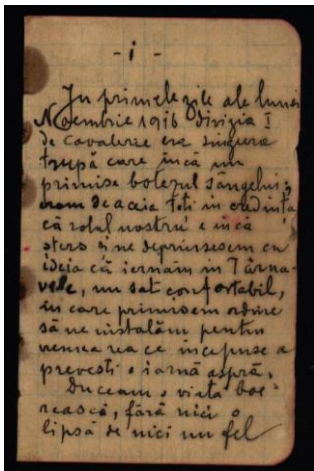 - i -
In primele zile ale lunei
Noembrie 1916 divizia I
de cavalerie era singura
trupă care încă nu
primise botezul sângelui;
eram de aceia toti in credinţa
că rolul nostru e încă
sters si ne deprinsesem cu
ideia că iernăm in Târna-
vele, un sat confortabil,
in care primisem ordine
să ne instalăm pentru
vremea rea ce incepuse a
prevesti o iarnă aspră.
Duceam o viata boe-
rească, fără nici o
lipsă de nici un fel